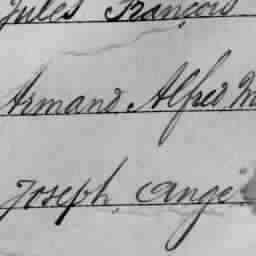 Jules François
Armand Alfred
Joseph Ange